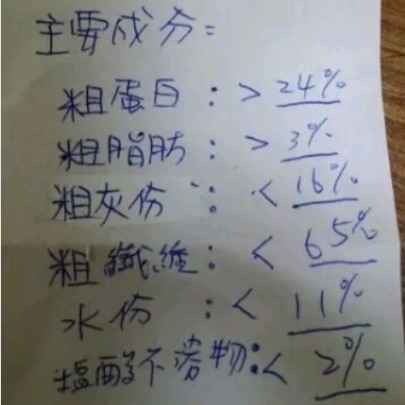 主要成分:
粗蛋白:> 24%
粗脂肪:> 3%
粗灰份:< 16%
粗纖維:< 65%
水份:< 11%
塩酸不溶物:< 2%